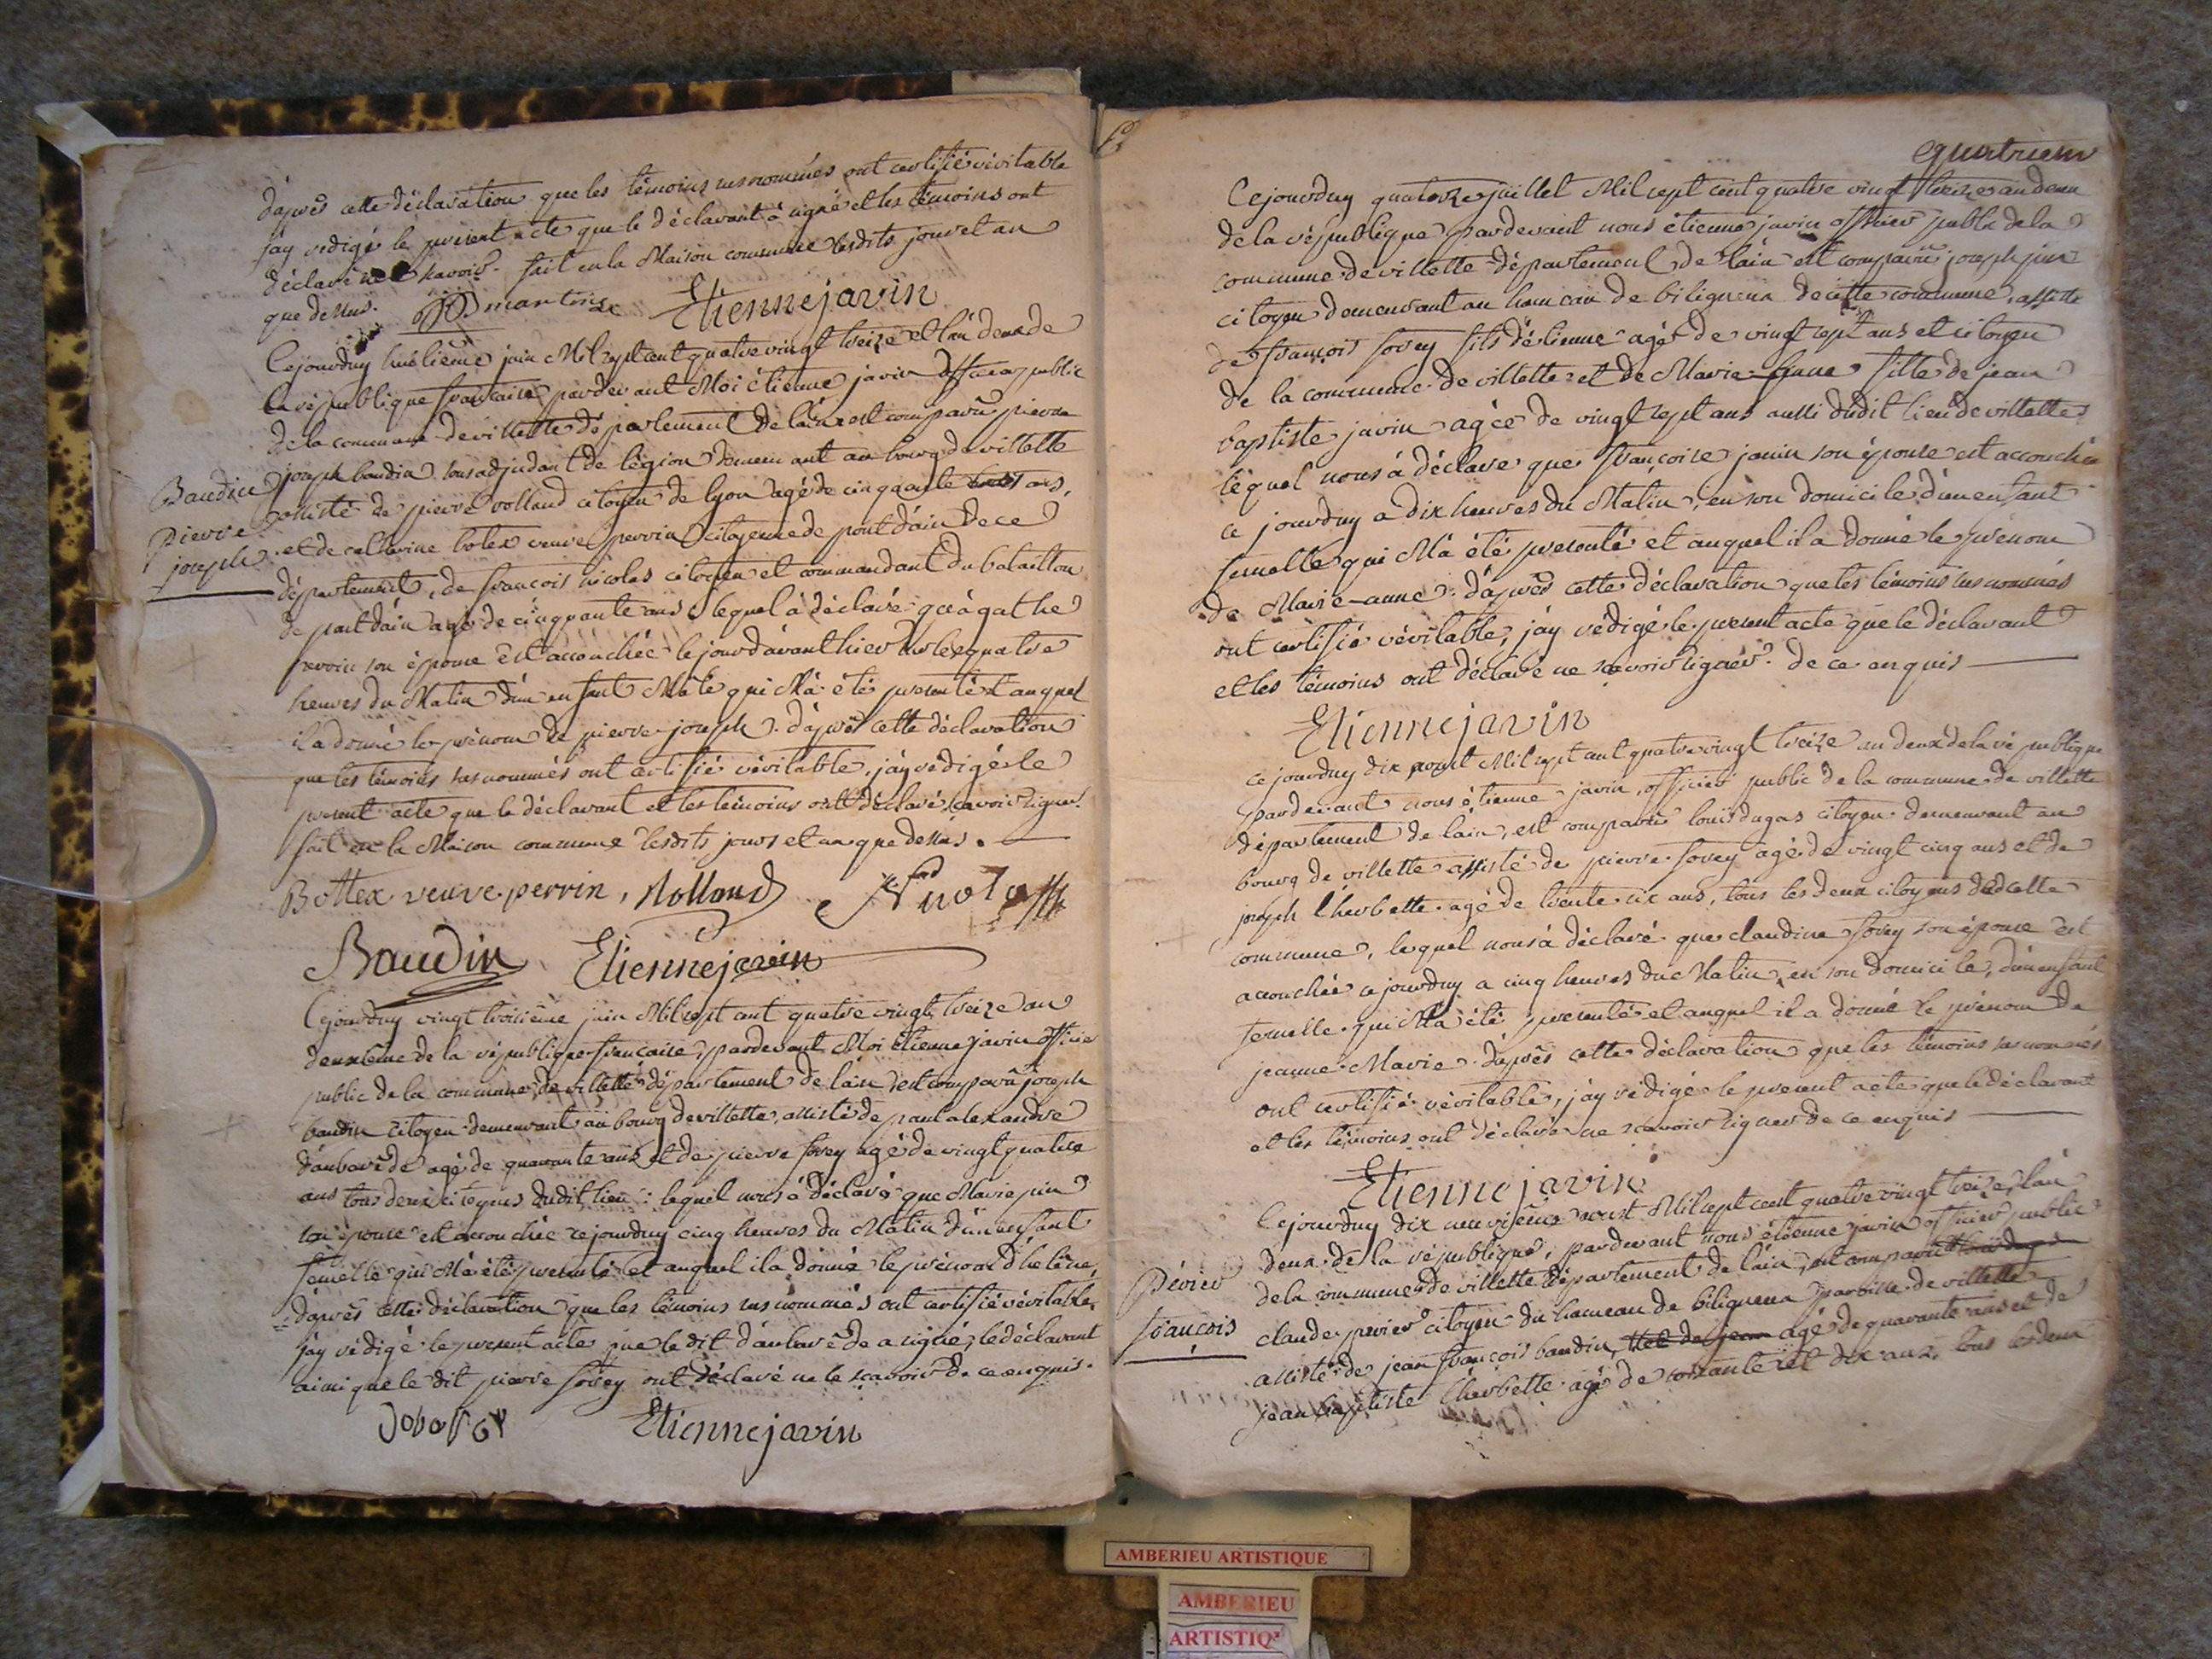 d'après cette déclaration que les témoins susnommés ont certifié véritable
j'ay redigé le présent acte que le déclarant à signé et les témoins ont
déclaré ne savoir. fait en la Maison commune lesdits jour et an
que dessus. martin Etienne javin
Cejourduy huitième juin Mil sept cent quatre vingt treize et l'an deux de
la république francaise pardevant Moi étienne javin officier public
de la commune de villette département de l'ain est comparû pierre
Baudin joseph baudin sous adjudant de légion demeurant au bourg de villette
pierre assisté de pierre volland citoyen de lyon agé de cinquante ans,
joseph et de catherine botex veuve perrin citoyenne de pont d'ain de ce
département, de françois nicolas citoyen et commandant du bataillon
de pont d'ain agé de cinquante ans lequel à déclaré qu'àgathe
perrin son épouse est accouchée le jour d'avant hier sur les quatre
heures du Matin d'un enfant Mâle qui M'a été presenté et auquel
il a donné le prénom de pierre joseph. d'après cette déclaration
que les témoins susnommés ont certifié véritable, j'ay rédigé le
present acte que le déclarant et les témoins ont déclaré scavoir signer.
fait en la Maison commune lesdits jours et an que dessus.
Bottex veuve perrin,
Baudin Etienne javin
Cejourduy vingt troisième juin Mil sept cent quatre vingt treize an
deuxième de la république francaise, pardevant Moi étienne javin officier
public de la commune de villette département de l'ain est comparû joseph
baudin citoyen demeurant au bourg de villette, assisté de paul alexandre
d'aubarède agé de quarante ans et de pierre sorey agé de vingt quatre
ans tous deux citoyens dudit lieu: lequel nous à déclaré que Marie pin
son épouse est accouchée cejourduy cinq heures du Matin d'un enfant
femelle qui M'a été presenté et auquel il a donné le prénom d'helène,
d'après cette déclaration que les témoins susnommés ont certifié véritable,
j'ay rédigé le present acte que le dit d'aubarède a signé, le déclarant
ainsi que le dit pierre sorey ont déclaré ne le scavoir de ce enquis.
Etienne javin
Cejourduy quatorze juillet Mil sept cent quatre vingt treize an deux
de la république pardevant nous étienne javin officier public de la
commune de villette département de l'ain est comparû joseph
citoyen demeurant au hameau de biliguena de cette commune, assisté
de françois sorey fils d'étienne agé de vingt sept ans et citoyen
de la commune de villette et de Marie fille de jean
baptiste javin agée de vingt sept ans aussi dudit lieu de villette
lequel nous à déclaré que françoise janin son épouse est accouchée
ce jourduy a dix heures du Matin, en son domicile d'un enfant
femelle qui M'a été presenté et auquel il a donné le prénom
de Marie-anne. d'après cette déclaration que les témoins susnommés
ont certifié véritable, j'ay rédigé le present acte que le déclarant
et les témoins ont déclaré ne scavoir signer. de ce enquis
Etienne javin
ce jourduy dix aoust Mil sept cent quatre vingt treize an deux de la république
pardevant nous étienne javin, officier public de la commune de villette
département de l'ain, est comparû louis dugas citoyen demeurant au
bourg de villette assisté de pierre sorey agé de vingt cinq ans et de
joseph lherbette agé de trente six ans, tous les deux citoyens de cette
commune, lequel nous à déclaré que claudine sorey son épouse est
accouchée cejourduy a cinq heures du Matin, en son domicile, d'un enfant
femelle qui M'a été presenté et auquel il a donné le prénom de
jeanne Marie. d'après cette déclaration que les témoins susnommés
ont certifié véritable, j'ay rédigé le present acte que le déclarant
et les témoins ont déclaré ne scavoir signer de ce enquis
Etienne javin
Cejourduy dix neuvième aoust Mil sept cent quatre vingt treize, l'an
deux de la république, pardevant nous étienne javin officier public
Périer de la commune de villette département de l'ain, est comparû louis dugas
françois claude perier citoyen du hameau de biliguena paroisse de villette
assisté de jean françois baudin, agé de quarante ans et de
jean baptiste lherbette agé de soixante et dix ans, tous les deux
AMBERIEU ARTISTIQUE
AMBERIEU
ARTISTIQ